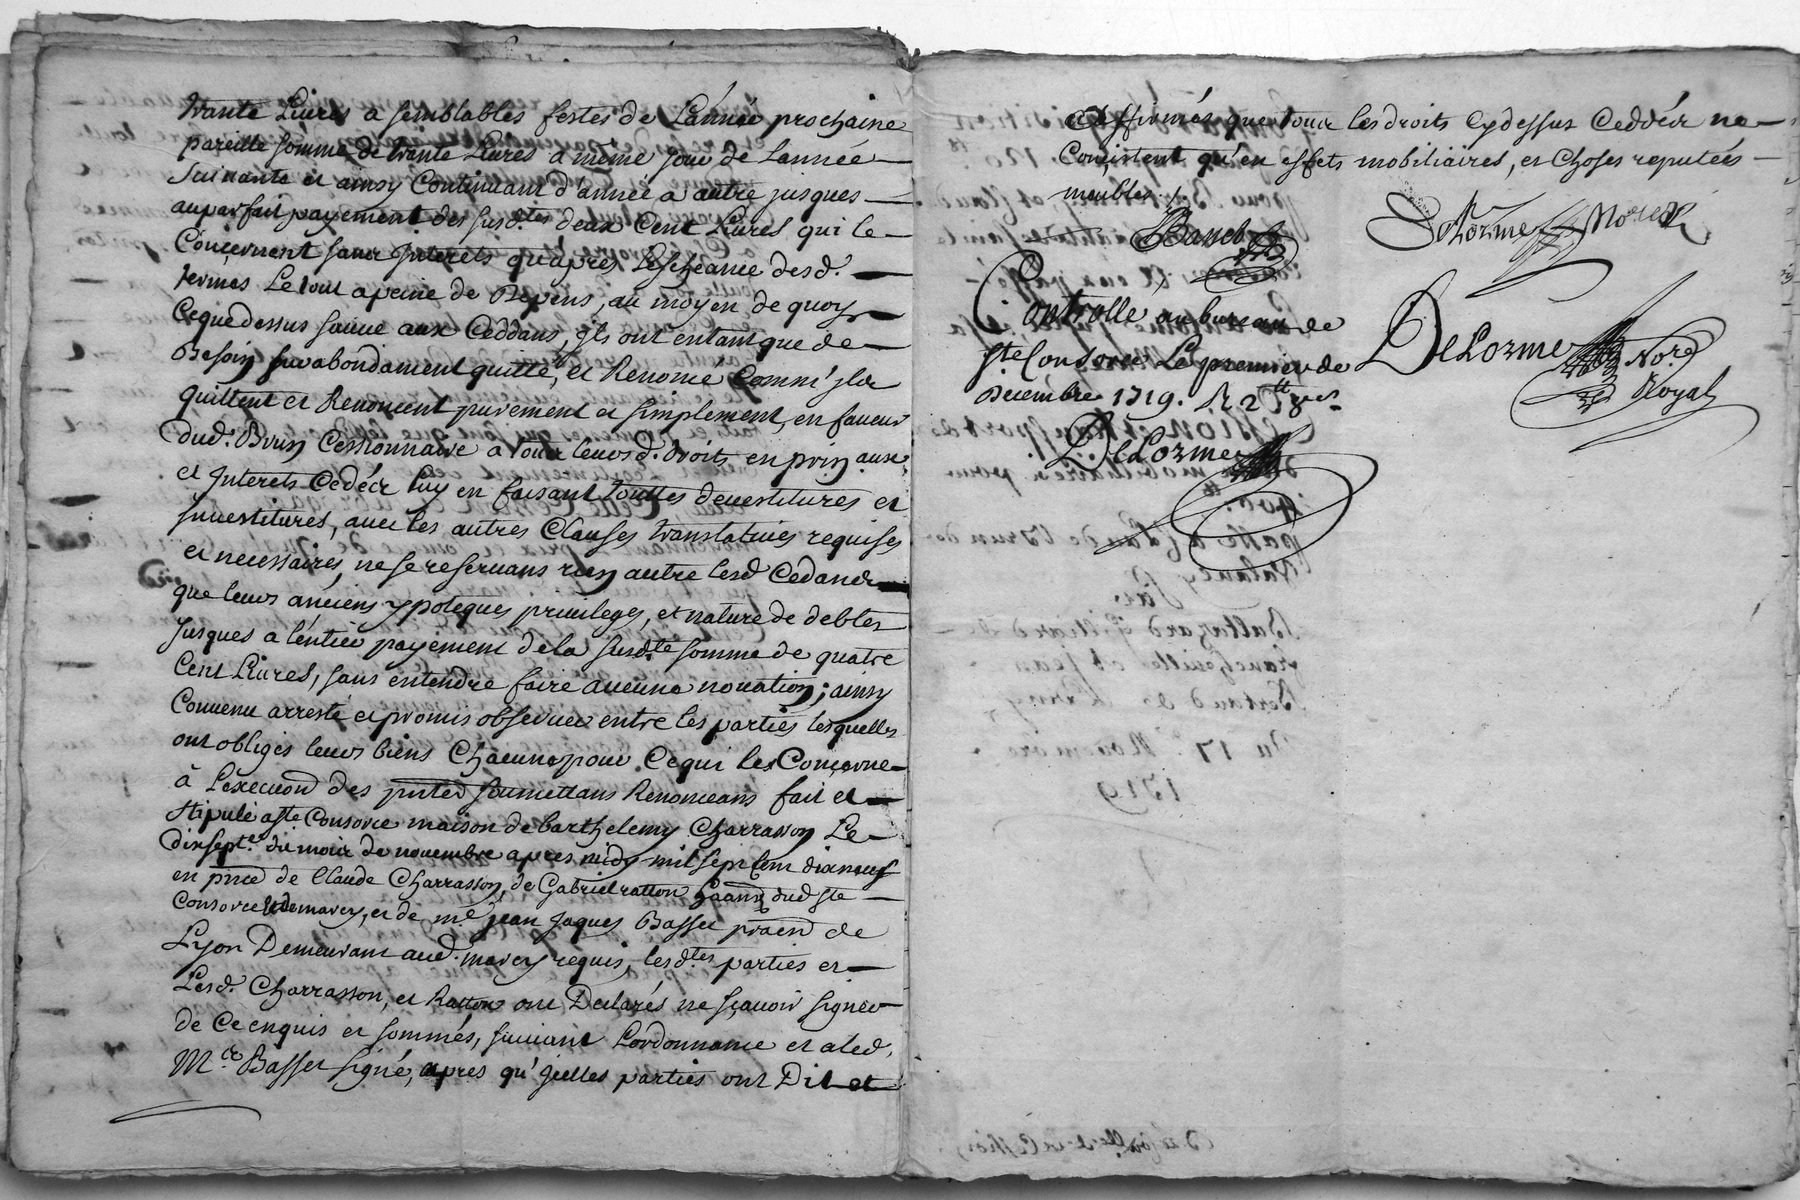 trante Livres a semblables festes de L'année prochaine
pareille somme de trante Livres a méme jour de Lannée
suivante et ainsy Continuant d'année a autre jusques
au parfait payement des susd.tes deux Cent Livres qui le
Conçernent sans Interets qu'apres L'escheance desd.
termes Le tout a peine de Depens, au moyen de quoy
Ceque dessus sauve aux Ceddans, Ils ont entant que de
Besoin surabondament quitté, et Renoncé Comm' Ils
quittent et Renoncent purement et simplement, en faveur
dud. Brun Cessionnaire a tous leurs d. droits en prin.aux
et Interets Cedés luy en faisant touttes devestitures et
Investitures, avec les autres Clauses translatives requises
et necessaires, ne se reservans rien autre lesd Cedans
que leurs anciens ypoteques privileges, et nature de debtes
Jusques a l'éntier payement de la susd.te somme de quatre
Cent Livres, sans entendre faire aucune novation; ainsy
Convenu arresté et promis observer entre les parties lesquelles
ont obligés leurs biens Chacune pour Ce qui les Conçerne
à L'execuon des pntes soumettans Renonceans fait et
stipulé a Ste Consorce maison de barthelemy Charrasson Le
dixsept.e du mois de novembre apres midy mil sept Cent dixneuf
en pnce de Claude Charrasson, de Gabriel ratton dud Ste
Consorce et de me jean Jaques Basset de
Lyon Demeurant aud. marcy requis, les d.tes parties et
Lesd. Charrasson, et Ratton ont Declarés ne sçavoir signer
de Ce enquis et sommés, suivant Lordonnance et a led.
M.e Basset signé, apres qu'Icelles parties ont Dit et
et affirmés que tous les droits Cy dessus Ceddés ne
Conçistent qu'en effets mobiliaires, et Choses reputées
meubles.
Basset
DeLorme Nore R
Controlle au bureau de
Ste Consorce Le premier de
Decembre 1719. R 2tt
DeLorme
DeLorme Nore
Royal